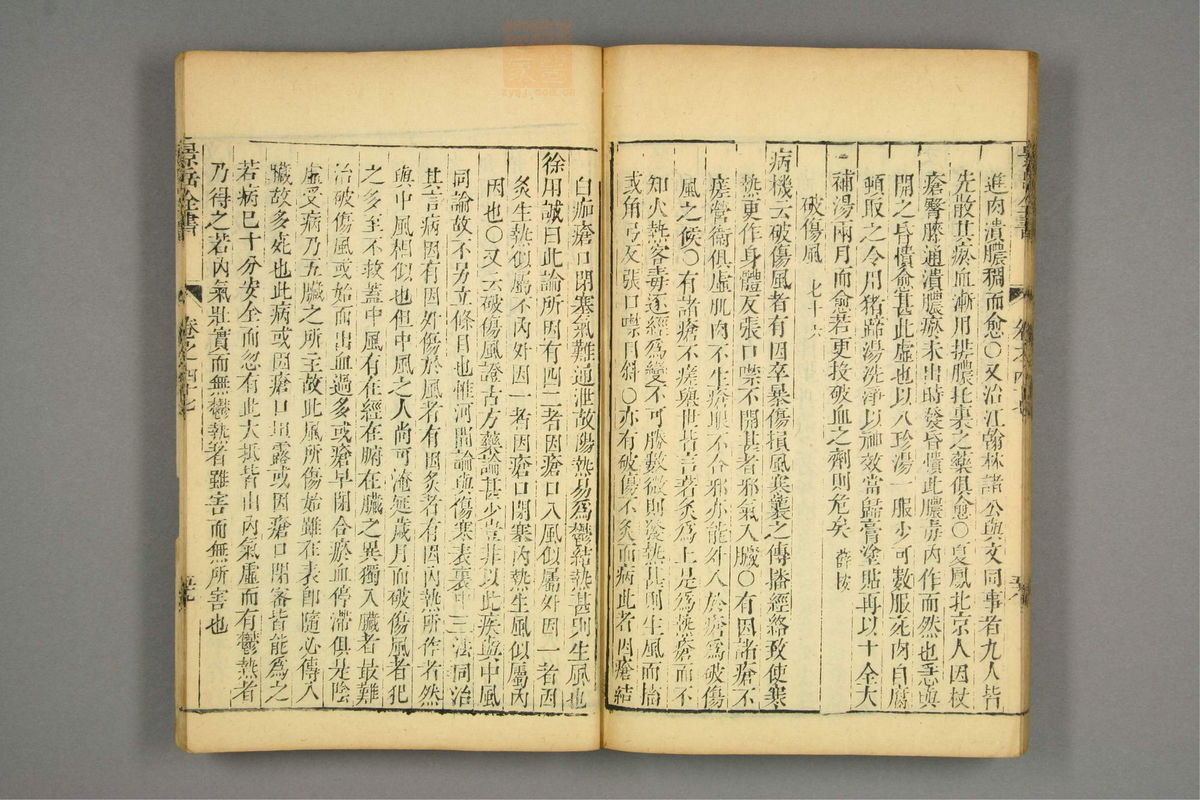 進肉潰膿稠而愈○又治江翰林諸公與文同事者九人皆
先散其瘀血漸用排膿托裏之藥俱愈○夏鳳北京人因杖
瘡臀膝通潰膿瘀未出時發昏憒此膿毒內作而然也急與
開之昏憒愈甚此虛也以八珍湯一服少可數服死肉自腐
頓取之令用猪蹄湯洗淨以神效當歸膏塗貼再以十全大
補湯兩月而愈若更投破血之劑則危矣 薛按
破傷風 七十六
病機云破傷風者有因卒暴傷損風寒襲之傳播經絡致使寒
熱更作身體反張口噤不開甚者邪氣入臟○有因諸瘡不
瘥營衛俱虛肌肉不生瘡眼不合邪亦能外入於瘡為破傷
風之候○有諸瘡不瘥舉世皆言著灸為上是為熱瘡而不
知火熱客毒逐經為變不可勝數微則發熱甚則生風而搐
或角弓反張口噤目斜○亦有破傷不灸而病此者因瘡結
白痂瘡口閉塞氣難通泄故陽熱易為鬱結熱甚則生風也
徐用誠曰此論所因有四二者因瘡口入風似屬外因一者因
灸生熱似屬不內外因一者因瘡口閉塞內熱生風似屬內
因也○又云破傷風證古方藥論甚少豈非以此疾與中風
同論故不另立條目也惟河間論與傷寒表裏中三法同治
其言病因有因外傷於風者有因灸者有因內熱所作者然
與中風相似也但中風之人尚可淹延歲月而破傷風者犯
之多至不救蓋中風有在經在腑在臟之異獨入臟者最難
治破傷風或始而出血過多或瘡早閉合瘀血停滯俱是陰
虛受病乃五臟之所主故此風所傷始雖在表即隨必傳入
臟故多死也此病或因瘡口出露或因瘡口閉密皆能為之
若病已十分安全而忽有此大抵皆由內氣虛而有鬱熱者
乃得之若內氣壯實而無鬱熱者雖害而無所害也
景岳全書
卷之四十七